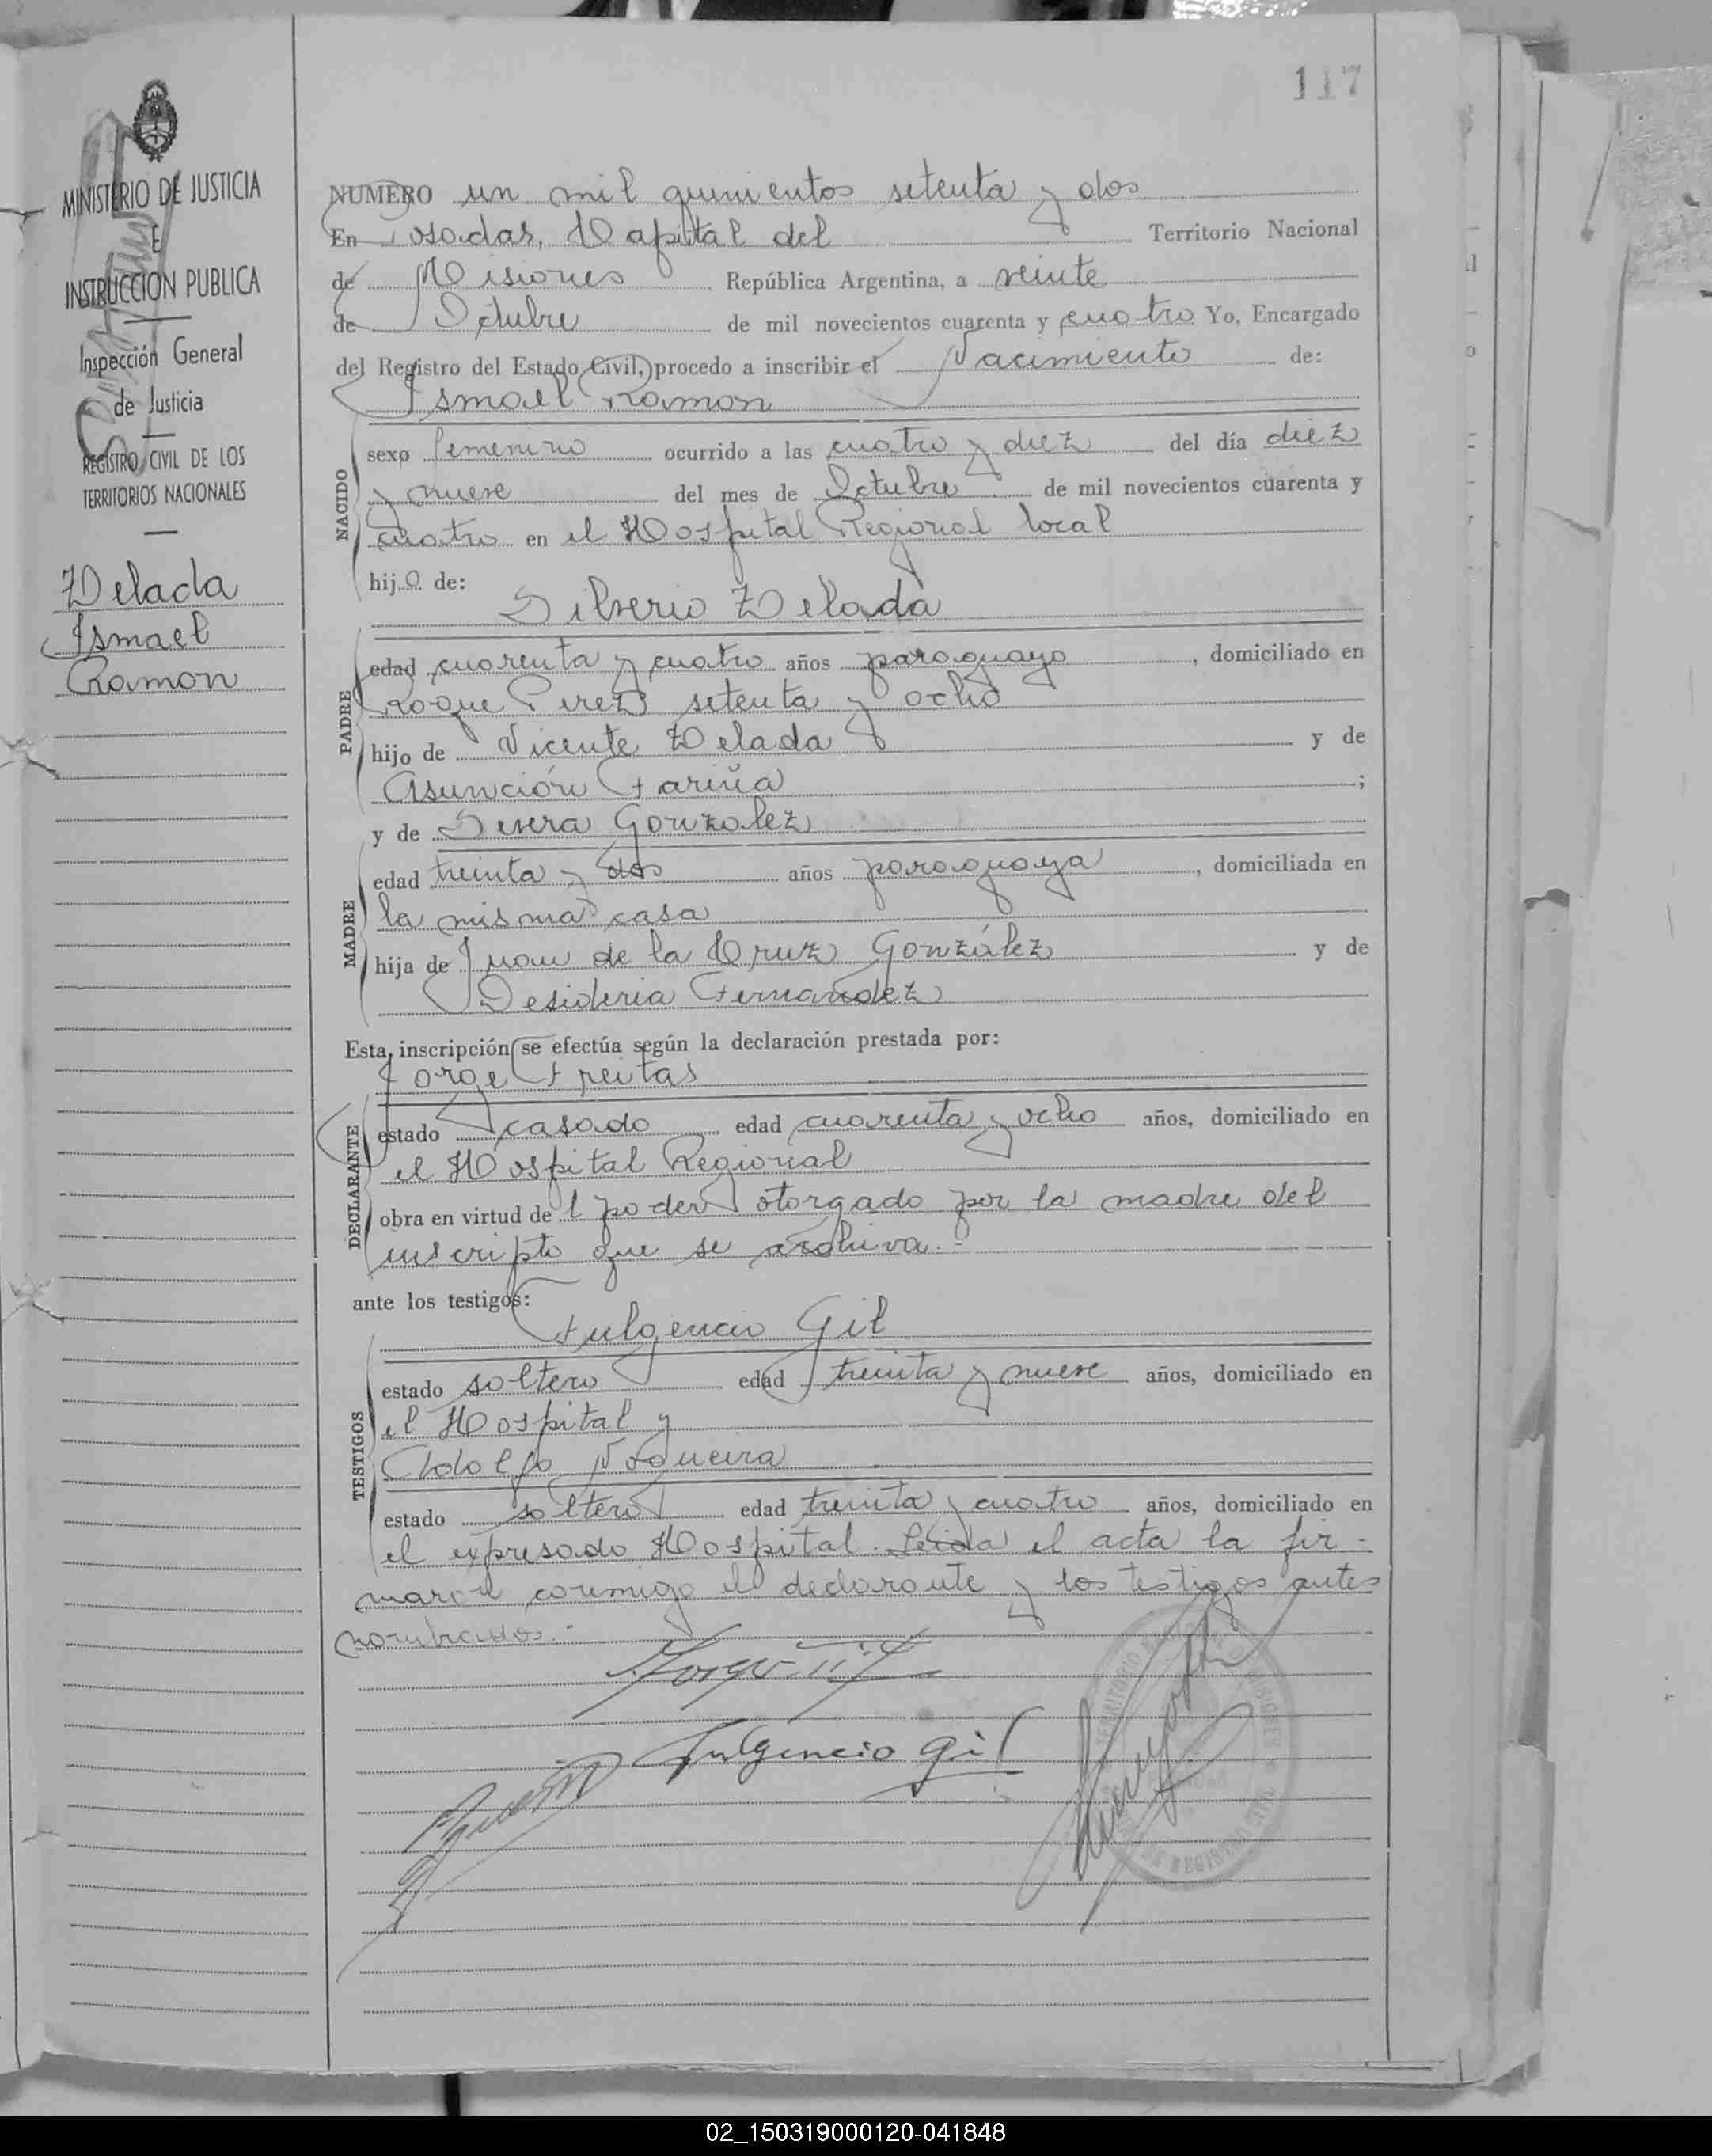 117
MINISTERIO DE JUSTICIA
E
INSTRUCCION PUBLICA
Inspección General
de Justicia
REGISTRO CIVIL DE LOS
TERRITORIOS NACIONALES
Zelada
Ismael
Ramon
NUMERO un mil quinientos setenta y dos
En Posadas, Capital del Territorio Nacional
de Misiones República Argentina, a veinte
de Octubre de mil novecientos cuarenta y cuatro Yo, Encargado
del Registro del Estado Civil, procedo a inscribir el Nacimiento de:
Ismael Ramon
NACIDO
sexo femenino ocurrido a las cuatro y diez del día diez
y nueve del mes de Octubre de mil novecientos cuarenta y
cuatro en el Hospital Regional local
hijo de:
Silverio Zelada
PADRE
edad cuarenta y cuatro años paraguayo, domiciliado en
Roque Perez setenta y ocho
hijo de Vicente Zelada y de
Asunción Fariña ;
y de Severa Gonzalez
MADRE
edad treinta y dos años paraguaya, domiciliada en
la misma casa
hija de Juan de la Cruz González y de
Desideria Fernandez
Esta inscripción se efectúa según la declaración prestada por:
Jorge Freitas
DECLARANTE
estado casado edad cuarenta y ocho años, domiciliado en
el Hospital Regional
obra en virtud del poder otorgado por la madre del
inscripto que se archiva.-
ante los testigos:
Fulgencio Gil
TESTIGOS
estado soltero edad treinta y nueve años, domiciliado en
el Hospital y
Adolfo Nogueira
estado soltero edad treinta y cuatro años, domiciliado en
el expresado Hospital. Leida el acta la fir-
maron conmigo el declarante y los testigos antes
nombrados.-
Fulgencio Gil
02_150319000120-041848